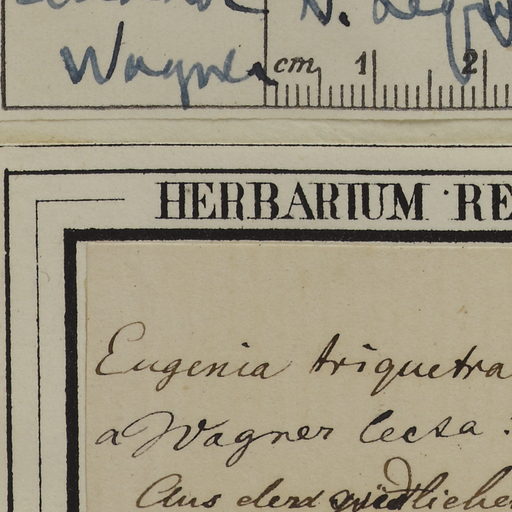 N.
Wagner cm 1 2
HERBARIUM RE
Eugenia triquetra
a Wagner lecta :
Aus dem südliche